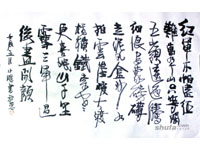 紅軍不怕遠征
難萬水千山只等閑
五嶺逶迤騰
細浪烏蒙磅礴
走泥丸金沙水
拍雲崖暖大渡
橋橫鐵索寒
更喜岷山千里
雪三軍過
後盡開顏